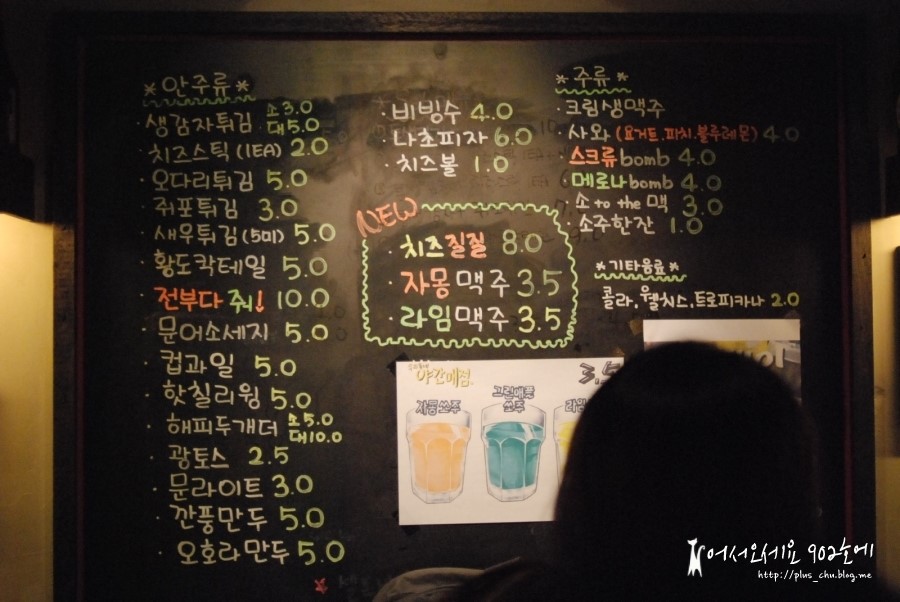 *안주류*
·생감자튀김 소3.0 대5.0
·치즈스틱(1EA) 2.0
·오다리튀김 5.0
·쥐포튀김 3.0
·새우튀김(5미) 5.0
·황도칵테일 5.0
·전부다 줘! 10.0
·문어소세지 5.0
·컵과일 5.0
·핫칠리윙 5.0
·해피두개더 소5.0 대10.0
·광토스 2.5
·문라이트 3.0
·깐풍만두 5.0
·오호라만두 5.0
·비빙수 4.0
·나초피자 6.0
·치즈볼 1.0
NEW
·치즈질질 8.0
·자몽맥주 3.5
·라임맥주 3.5
*주류*
·크림생맥주
·사와(요거트.피치.블루레몬) 4.0
·스크류bomb 4.0
·메로나bomb 4.0
·소 to the 맥 3.0
·소주한잔 1.0
*기타음료*
콜라.웰치스.트로피카나 2.0
야간매점
자몽쏘주
쏘주
어서오세요 902호에
http://plus_chu.blog.me